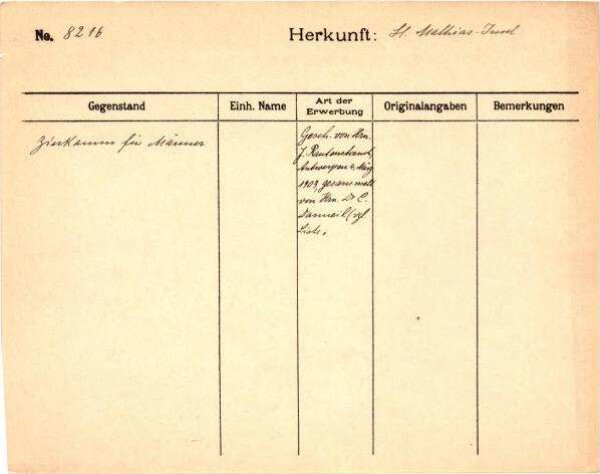 No. 8216 Herkunft: St. Mathias-Insel
Gegenstand Einh. Name Art der Erwerbung Originalangaben Bemerkungen
Zierkamm für Männer
Gesch. von Hrn.
J. Rautenstrauch,
Antwerpen 2. März
1903, gesammelt
von Hrn. Dr C.
Danneil (vgl.
Liste.